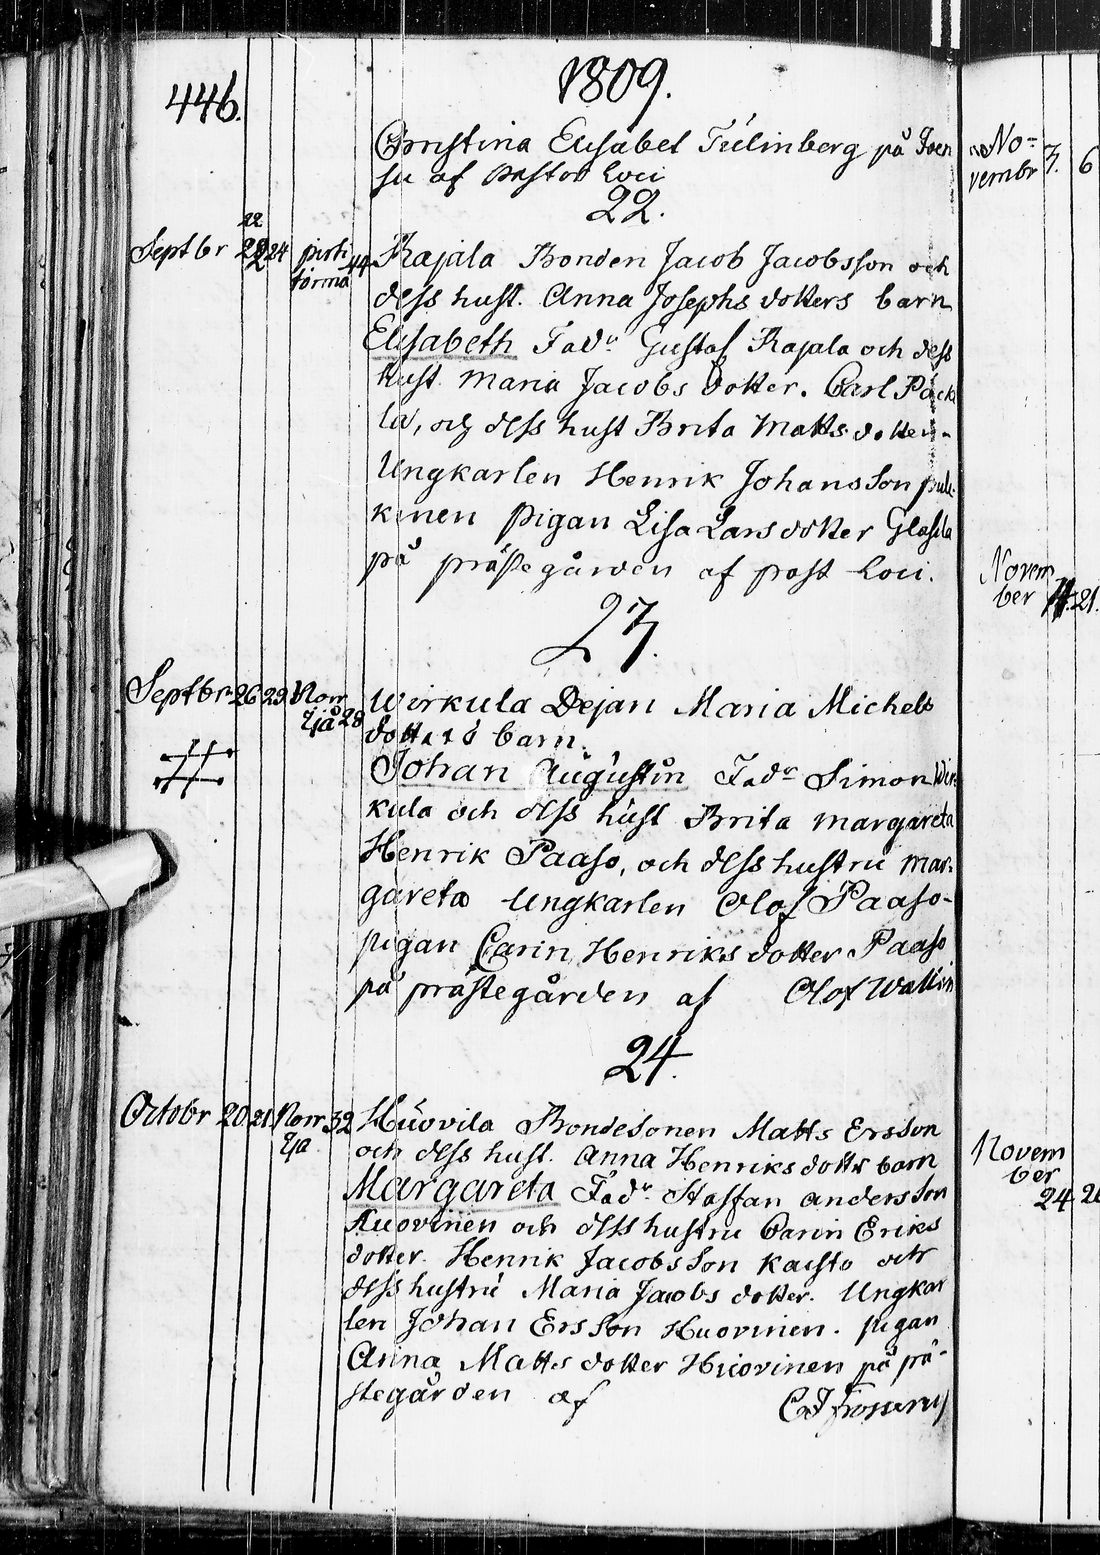 446.
1809.
Christina Elisabet Tulinberg på Joen
su af Pastor Loci
22.
22
Septbr 22 24 pirti 44
törmä
Rajala Bonden Jacob Jacobsson och
dess hust. Anna Josephs dotters barn
Elisabeth Fadr Gustaf Rajala och dess
hust. Maria Jacobs dotter. Carl Päck
lä, och dess hust Brita Matts dotter.
Ungkarlen Henrik Johansson pulk
kinen pigan Lisa Larsdotter
på prästegården af past Loci.
23.
Septbr 26 29 Norr
28
Wirkula Dejan Maria Michels
dotters ö barn.
Johan Augustin Fadr Simon Wir=
kula och dess hust Brita margareta
Henrik Paaso, och dess hustru Mar=
gareta Ungkarlen Olof Paaso-
pigan Carin Henriks dotter Paaso
på prästegården af Olof Wallin
24.
Octobr 20 21 Norr 32
Huovila Bondesonen Matts Ersson
och dess hust. Anna Henriks dottr barn
Margareta Fadr. Staffan andersson
Huovinen och dess hustru Carin Eriks
dotter. Henrik Jacobsson Kaisto och
dess hustru Maria Jacobs dotter. Ungkar
len Johan Ersson Huovinen. pigan
Anna Matts dotter Huovinen på prä-
stegården af
No=
vembr 7. 6
Novem
ber 21.
Novem
ber
24